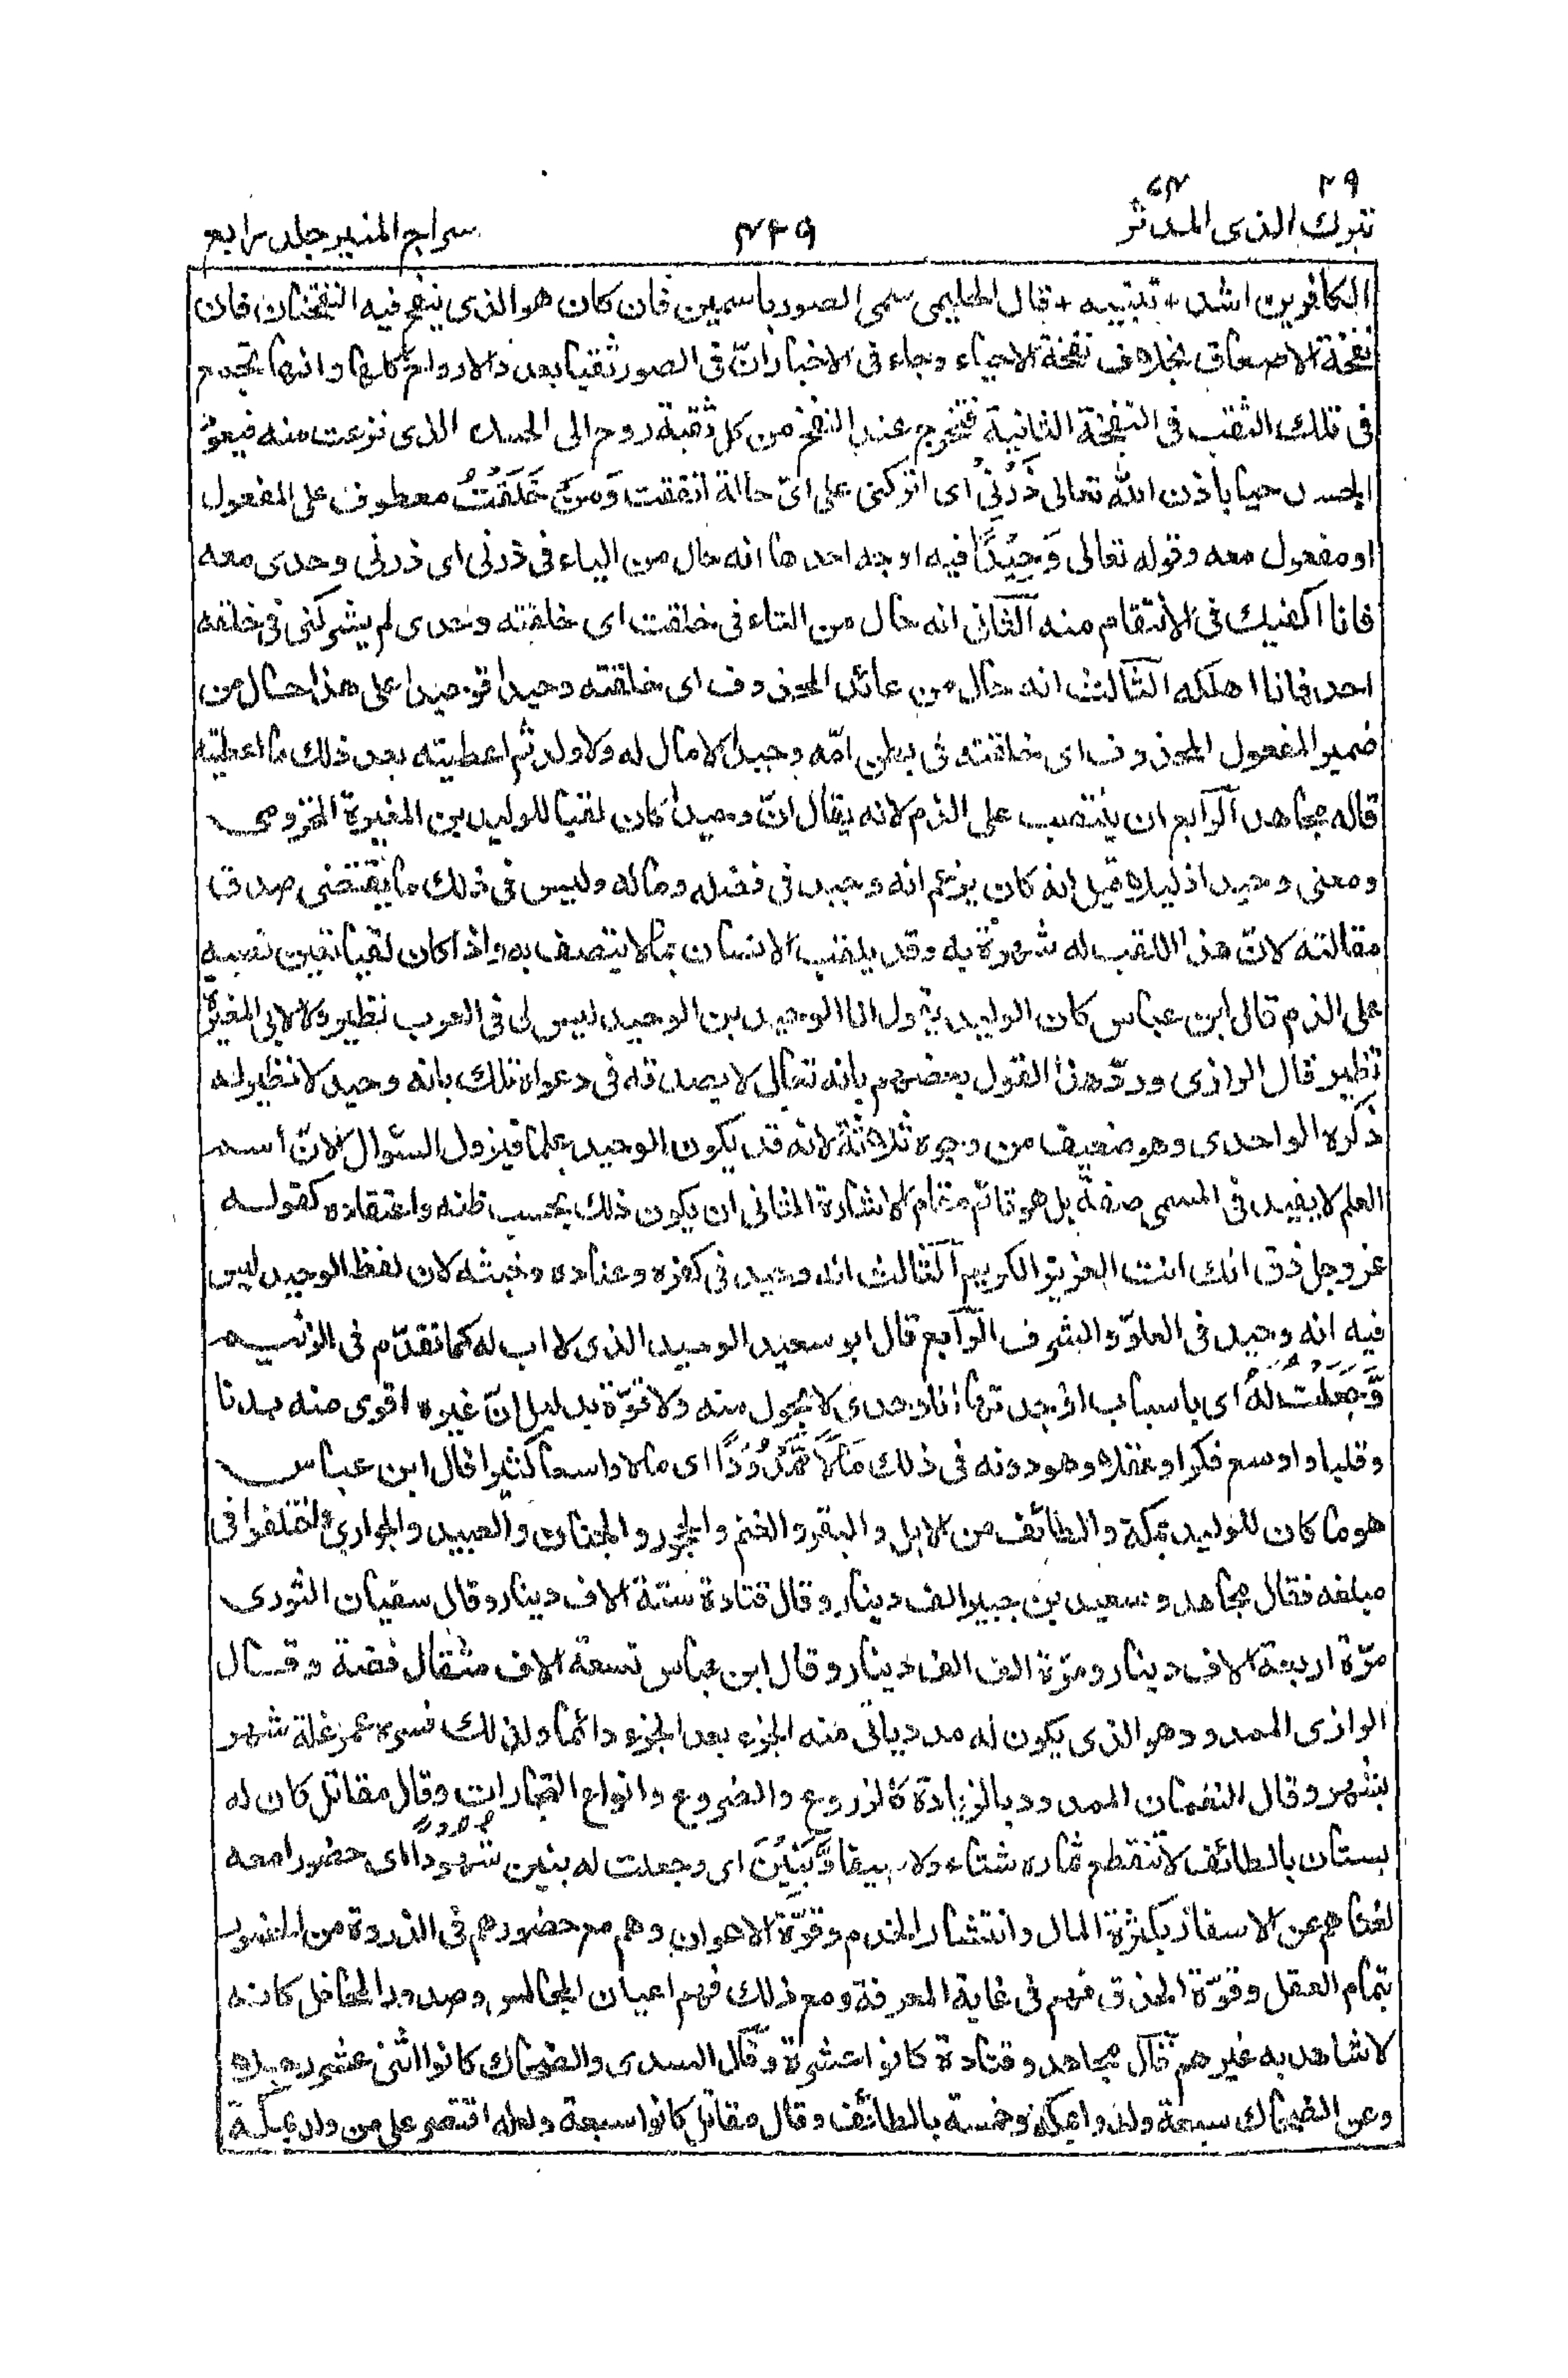 ٢٩ ٧٤
تبرك الذى المدثر ٤٦٩ سراج المنير جلد رابع
الكافرين اشد + تنبيه + قال الحليمى سمى الصور باسمين فان كان هو الذى ينفخ فيه النفختان فان
نفخة الاصعاق بخلاف نفخة الاحياء وجاء فى الاخبار انّ فى الصور ثقبا بعدد الارواح كلها وانها تجمع
فى تلك الثقب فى النفخة الثانية فتخرج عند النفخ من كل ثقبة روح الى الجسد الذى نزعت منه فيعود
الجسد حيا باذن الله تعالى ذَرْنِىْ اى اتركنى على اىّ حالة اتفقت وَمَنْ خَلَقْتُ معطوف على المفعول
او مفعول معه وقوله تعالى وَحِيْدًا فيه اوجه احدها انه حال من الياء فى ذرنى اى ذرنى وحدى معه
فانا اكفيك فى الانتقام منه الثانى انه حال من التاء فى خلقت اى خلقته وحدى لم يشركنى فى خلقه
احد فانا اهلكه الثالث انه حال من عائد المحذوف اى خلقته وحيدا فوحيدا على هذا حال من
ضمير المفعول المحذوف اى خلقته فى بطن امّه وحيدا لا مال له ولا ولد ثم اعطيته بعد ذلك ما اعطيته
قاله مجاهد الرابع ان ينتصب على الذم لانه يقال انّ وحيدا كان لقبا للوليد بن المغيرة المخزومى
ومعنى وحيدا ذليلا قيل انه كان يزعم انه وحيد فى فضله وماله وليس فى ذلك ما يقتضى صدق
مقالته لانّ هذا اللقب له شهرة به وقد يلقب الانسان بما لا يتصف به واذا كان لقبا تعين نصبه
على الذم قال ابن عباس كان الوليد يقول انا الوحيد بن الوحيد ليس لى فى العرب نظير ولا لابى المغيرة
نظير قال الرازى وردّ هذا القول بعضهم بانه تعالى لا يصدقه فى دعواه تلك بانه وحيد لا نظير له
ذكره الواحدى وهو ضعيف من وجوه ثلاثة لانه قد يكون الوحيد علما فيزول السؤال لانّ اسم
العلم لا يفيد فى المسمى صفة بل هو قائم مقام الاشارة الثانى ان يكون ذلك بحسب ظنه واعتقاده كقوله
عز وجل ذق انك انت العزيز الكريم الثالث انه وحيد فى كفره وعناده وخبثه لان لفظ الوحيد ليس
فيه انه وحيد فى العلوّ والشرف الرابع قال ابو سعيد الوحيد الذى لا اب له كما تقدّم فى الزنيم
وَّجَعَلْتُ لَهٗ اى باسباب اوجدتها انا وحدى لا بحول منه ولا قوّة بدليل انّ غيره اقوى منه بدنا
وقلبا واوسع فكرا وعقلا وهو دونه فى ذلك مَالًا مَّمْدُوْدًا اى مالا واسعا كثيرا قال ابن عباس
هو ما كان للوليد بمكة والطائف من الابل والبقر والغنم والحجور والجنان والعبيد والجوارى واختلفوا فى
مبلغه فقال مجاهد وسعيد بن جبير الف دينار وقال قتادة ستة الاف دينار وقال سفيان الثورى
مرّة اربعة الاف دينار ومرّة الف الف دينار وقال ابن عباس تسعة الاف مثقال فضة وقال
الرازى الممدود هو الذى يكون له مدد يأتى منه الجزء بعد الجزء دائما ولذلك فسره عمر غلة شهر
بشهر وقال النعمان الممدود بالزيادة كالزروع والضروع وانواع التجارات وقال مقاتل كان له
بستان بالطائف لا تنقطع ثماره شتاء ولا صيفا وَّبَنِيْنَ اى وجعلت له بنين شُهُوْدًا اى حضورا معه
لغناهم عن الاسفار بكثرة المال وانتشار الخدم وقوّة الاعوان وهم مع حضورهم فى الذروة من الحضور
بتمام العقل وقوّة الحذق فهم فى غاية المعرفة ومع ذلك فهم اعيان المجالس وصدور المحافل كانه
لا شاهد به غيرهم قال مجاهد وقتادة كانوا عشرة وقال السدى والضحاك كانوا اثنى عشر رجلا
وعن الضحاك سبعة ولدوا بمكة وخمسة بالطائف وقال مقاتل كانوا سبعة ولعله اقتصر على من ولد بمكة